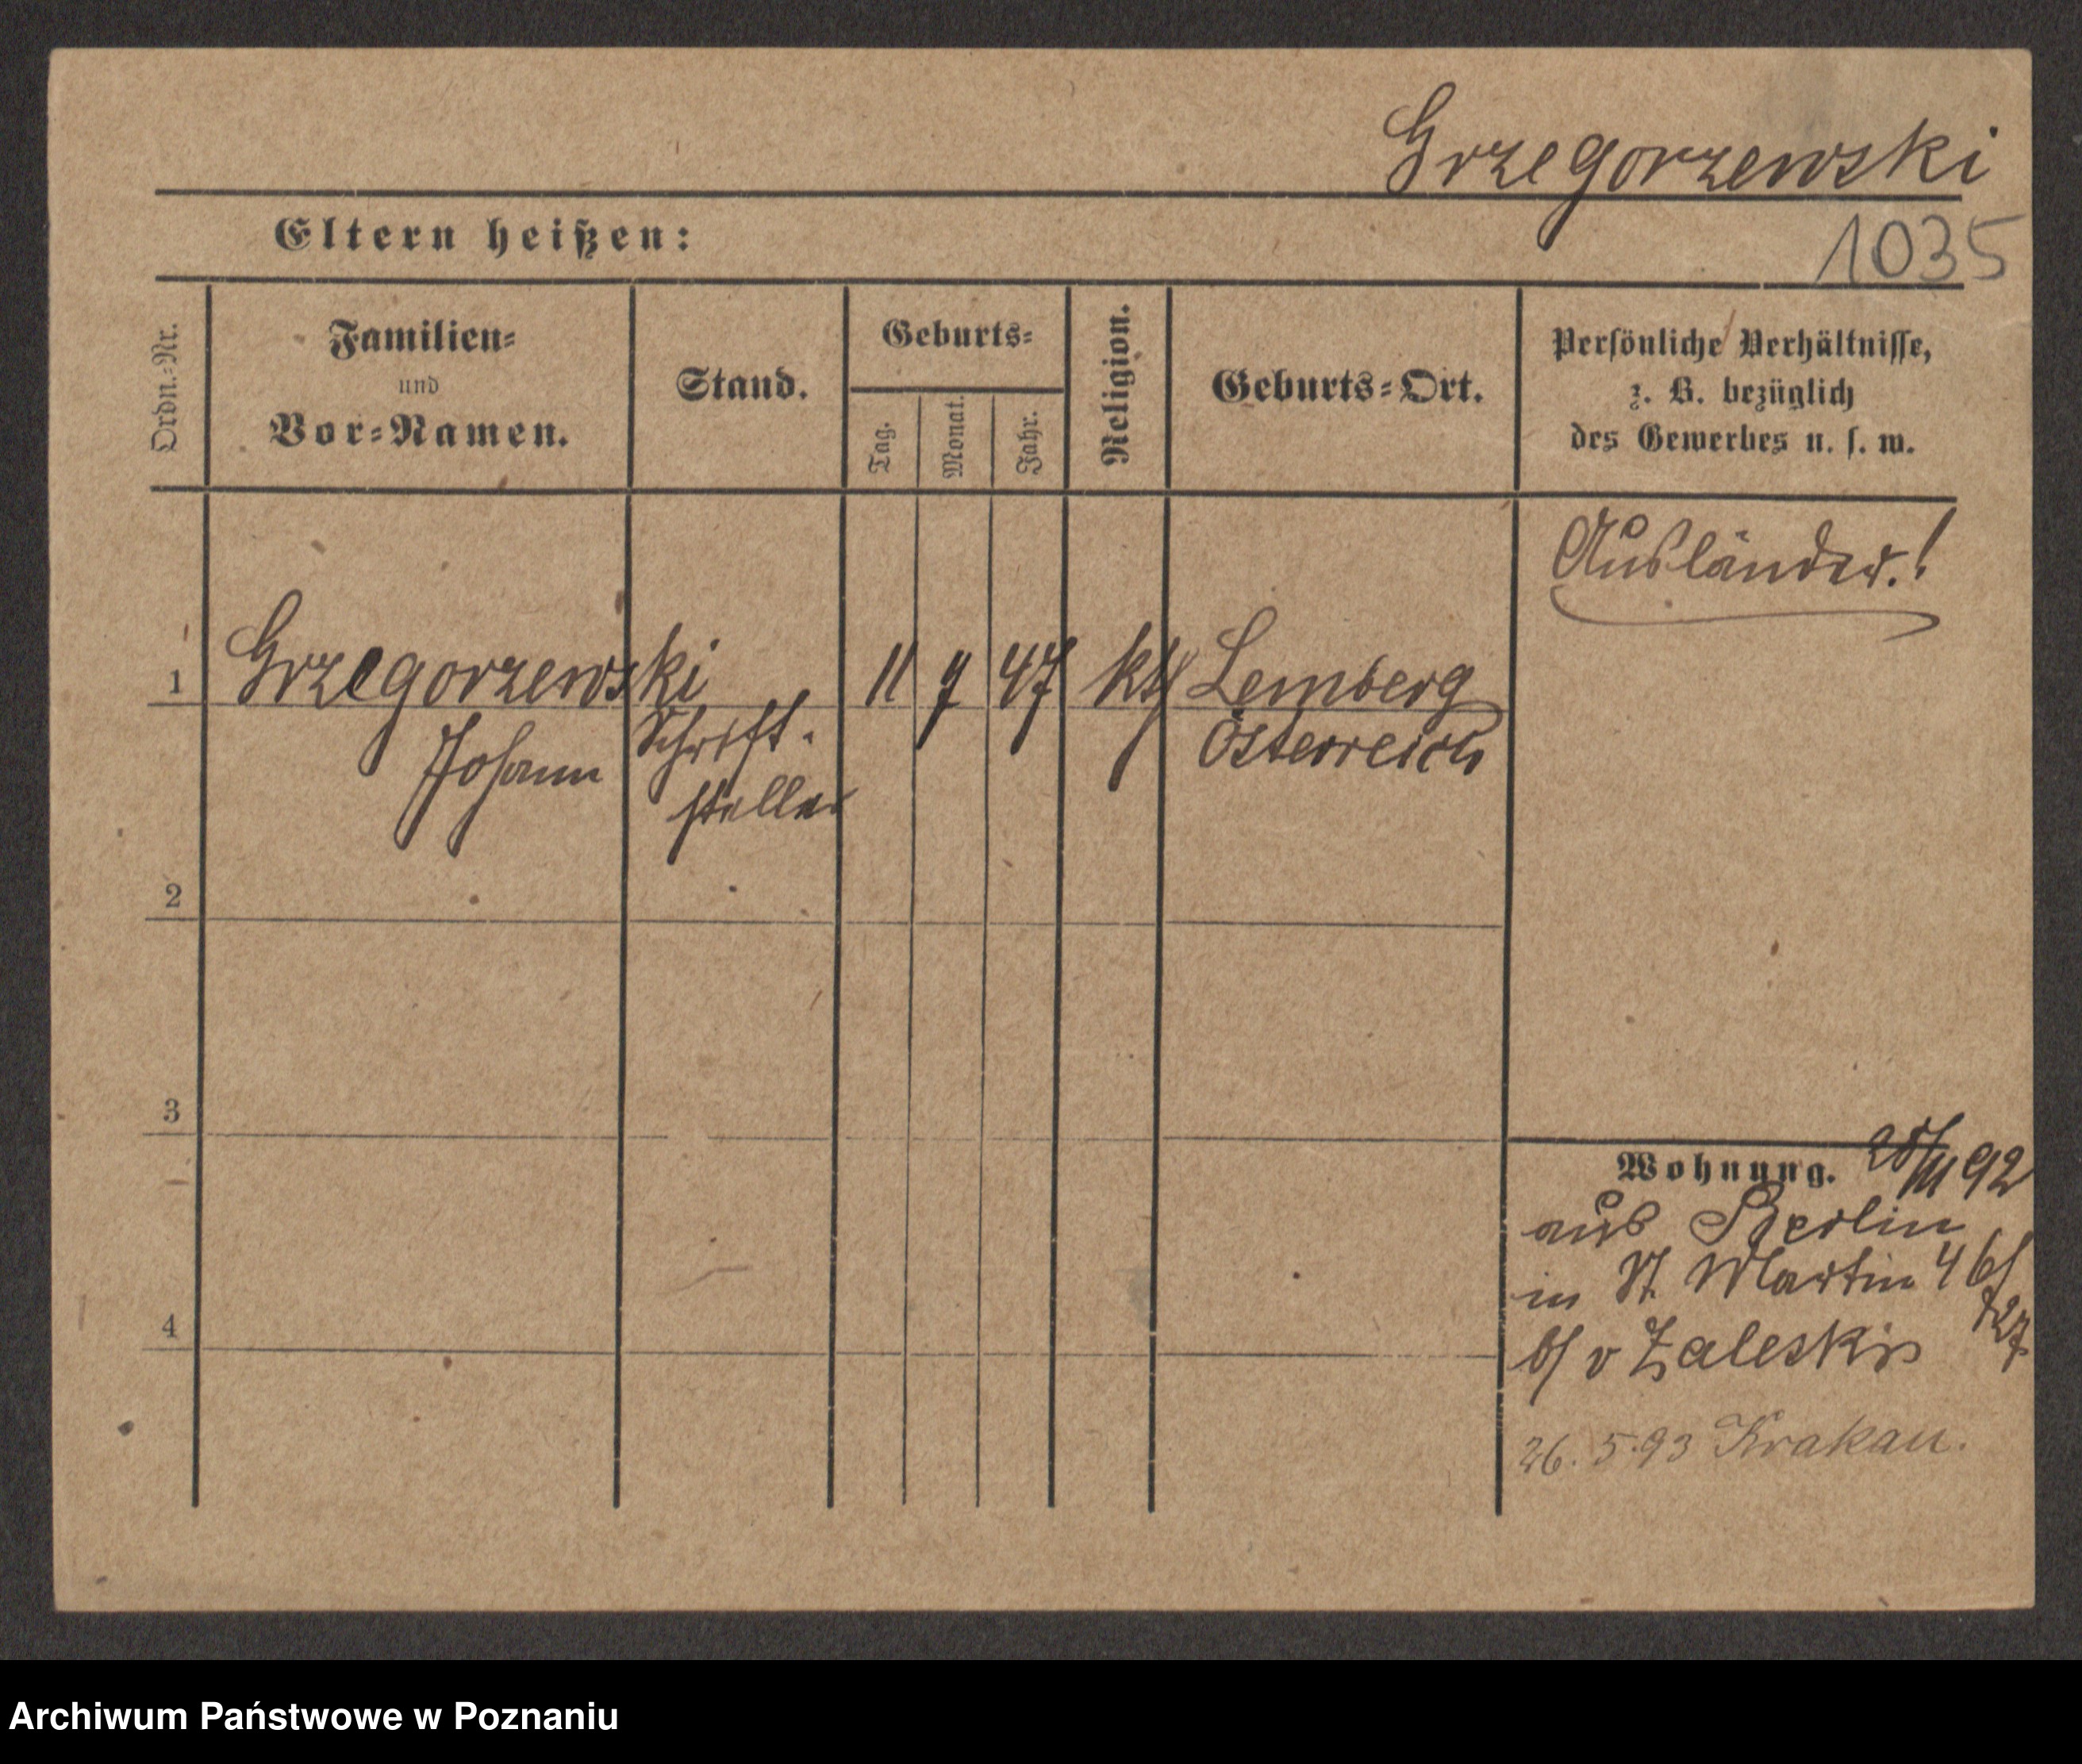 Grzegorzewski
Eltern heißen:
1035
Ordn.-Nr.
Familien-
und
Vor-Namen.
Stand.
Geburts-
Tag.
Monat.
Jahr.
Religion.
Geburts-Ort.
Persönliche Verhältnisse,
z. B. bezüglich
des Gewerbes u. s. w.
Ausländer.!
1 Grzegorzewski 11 9 47 kth Lemberg
Johann Schrift- Österreich
steller
2
3
4
Wohnung. 28/11 92
aus Berlin
in St. Martin 46/
727
b/ v Zaleski
26. 5. 93 Krakau.
Archiwum Państwowe w Poznaniu